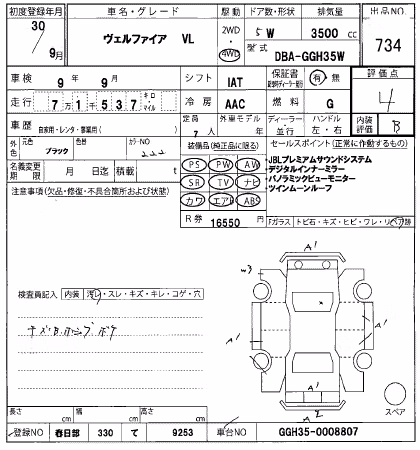 初度登録年月 車名・グレード 駆動 ドア数・形状 排気量 出品NO
30年 9月 ヴェルファイア VL 2WD・4WD 5W 3500cc 734
型式 DBA-GGH35W
車検 9年 9月 シフト IAT 保証書 有・無 評価点 4
走行 7万1千537 キロ・マイル 冷房 AAC 燃料 G
車歴 自家用・レンタ・事業用( ) 定員 7人 外車モデル 年 ディーラー・並行 ハンドル 左・右 内装評価 B
外色 元色 ブラック 色替 カラーNO 222
装備品(純正品に限る) セールスポイント(正常に作動するもの)
PS PW AW
SR TV ナビ
カワ エアB ABS
・JBLプレミアムサウンドシステム
・デジタルインナーミラー
・パノラミックビューモニター
・ツインムーンルーフ
名義変更期限 月 日迄 積載 t
注意事項(欠品・修復・不具合箇所および状態)
R券 16550
「ガラス トビ石・キズ・ヒビ・ワレ・リペア跡
A1
W3
検査員記入 内装 汚レ・スレ・キズ・キレ・コゲ・穴
A1
A1
A1
A2
スペア
長さ cm 幅 cm 高さ cm
登録NO 春日部 330 て 9253 車台NO GGH35-0008807